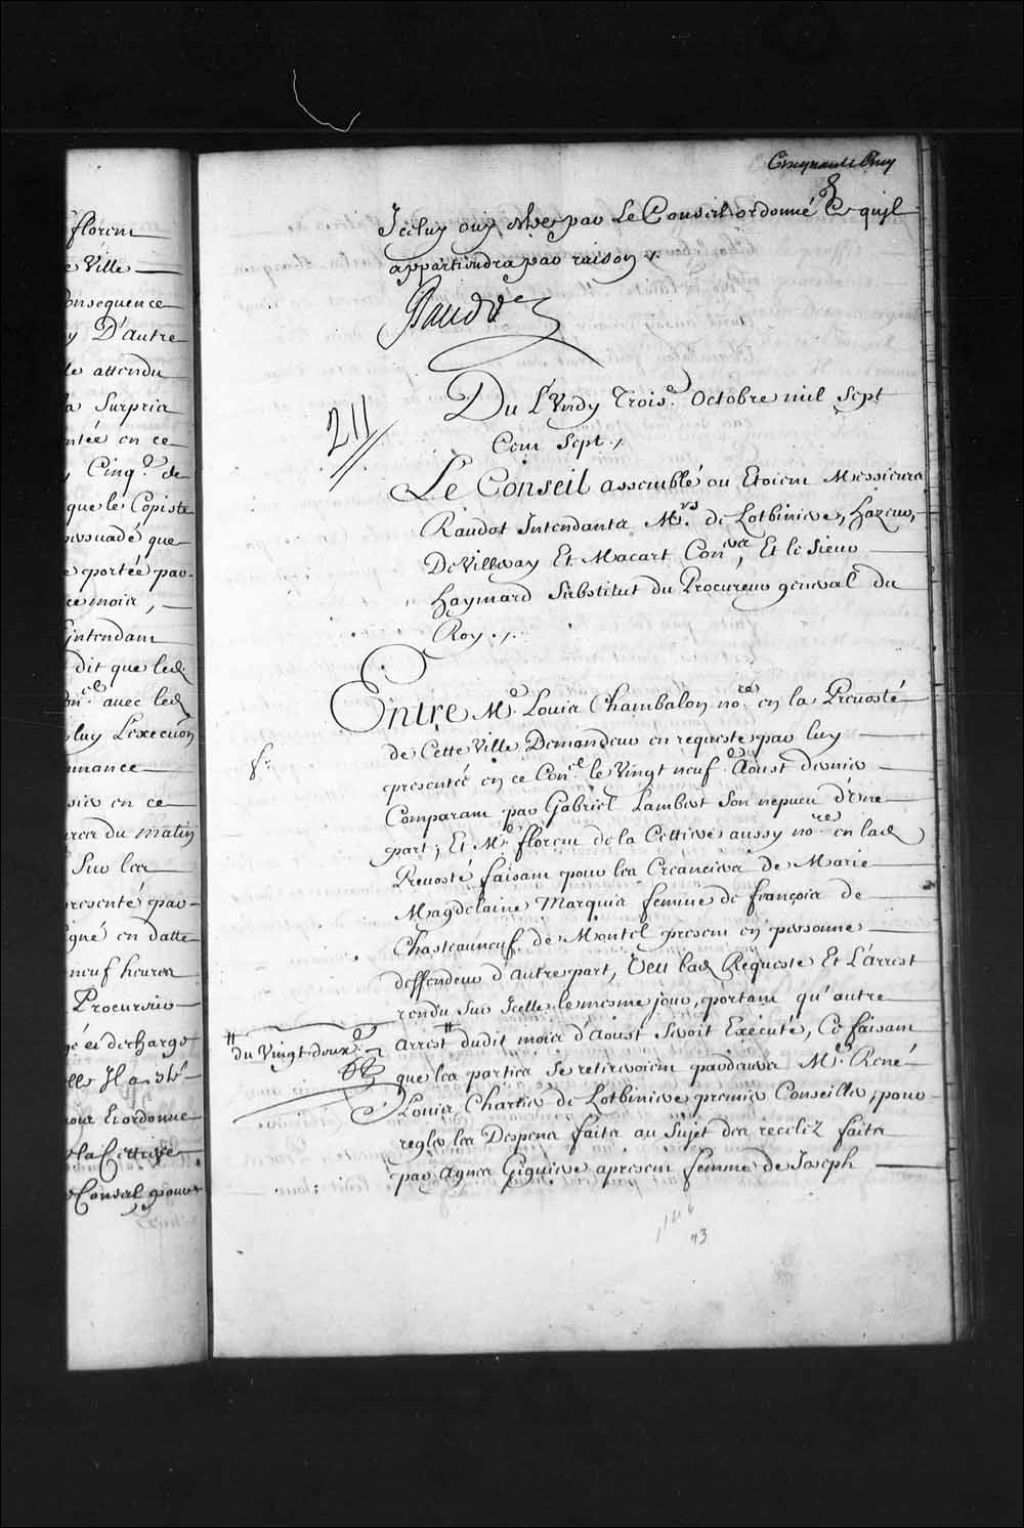 florent
e Ville
onsequence
y D'autre
le attendu
a Surpris
ntée en ce
Cinq.e de
que le Copiste
ersuadé que
e portée par
ce mois,
Jntendant
dit que led.
on.el avec led
luy L'execuõn
nnance
sié en ce
ures du matin
Sur les
resenté par
igné en datte
neuf heures
Procureur
gé et decharge
our Et ordonne
e la Cettiere
e Conseil pour
Cinquante Cinq
Jceluy ouy Estre par Le Conseil ordonné Ce quil
appartiendra par raison ./.
Raudot
211
Du L'Undy Trois.e Octobre mil Sept
Cent Sept ./.
Le Conseil assemblé ou Etoient Messieurs
Raudot Intendants M.rs de Lotbiniere, hazeur,
De Villeray Et Macart Con.ers, Et le Sieur
haymard Substitut du Procureur general du
Roy ./.
Entre M.e Louis Chambalon no.re en la Prevosté
de Cette Ville Demandeur en requeste par luy
presentée en ce Con.el le Vingt neuf.e Aoust dernier
Comparant par Gabriel Lambert Son nepueu d'Une
part; Et M.e florent de la Cettiere aussy no.re en lad
Prevosté faisant pour les Creanciers de Marie
Magdelaine Marquis femme de françois de
Chasteauneuf de Montel present en personne
deffendeur d'autre part, Veu lad Requeste Et L'arrest
rendu Sur Jcelle le mesme jour, portant qu'autre
arrest # dudit mois d'Aoust Seroit Executé, Ce faisant
# du Vingt-deux.e
que les parties Se retireroient pardevers M.e René
Louis Chartier de Lotbiniere premier Conseiller, pour
regler les Despens faits au Sujet des recelez faits
par Agnes Giguiere apresent femme de Joseph
146
73